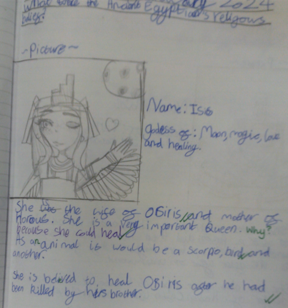 What were the Ancient Egyptians religious
beliefs?
2024
~Picture~
Name: Isis
goddess of: Moon, magic, love
and healing.
She was the wife of Osiris, and mother of
Horous. She is a very important Queen. why?
because she could heal
As an animal it would be a scorpo, bird, and
another.
She is beleved to heal OSiris after he had
been killed by hers brother.